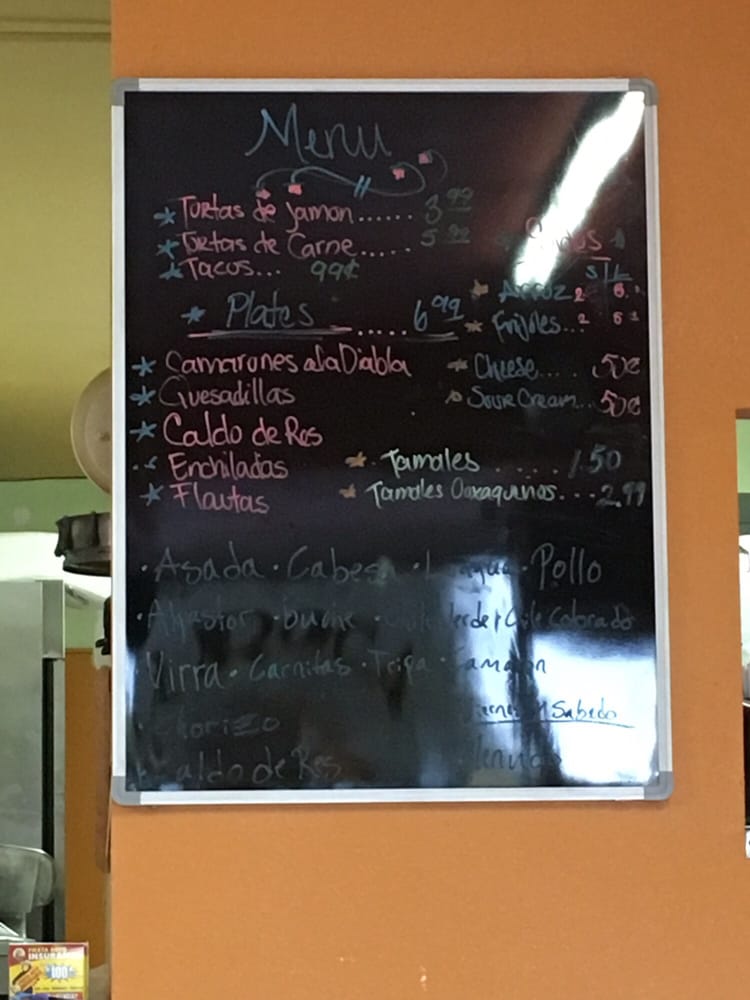 Menu
Tortas de jamon...... 3.99
Tortas de Carne...... 5.99
Tacos... 99¢
Plates ..... 6.99
Camarones a la Diabla
Quesadillas
Caldo de Res
Enchiladas
Flautas
S/L
Arroz 2
Frijoles... 2
Cheese.... .50¢
Sour Cream... 50¢
Tamales ..... 1.50
Tamales Oaxaquenos... 2.99
·Asada ·Cabesa · Pollo
· buche · Verde y Chile Colorado
Virra · Carnitas · Tripa ·Camaron
Chorizo
Caldo de Res
Viernes Y Sabado
Menudo
INSURANCE
$100